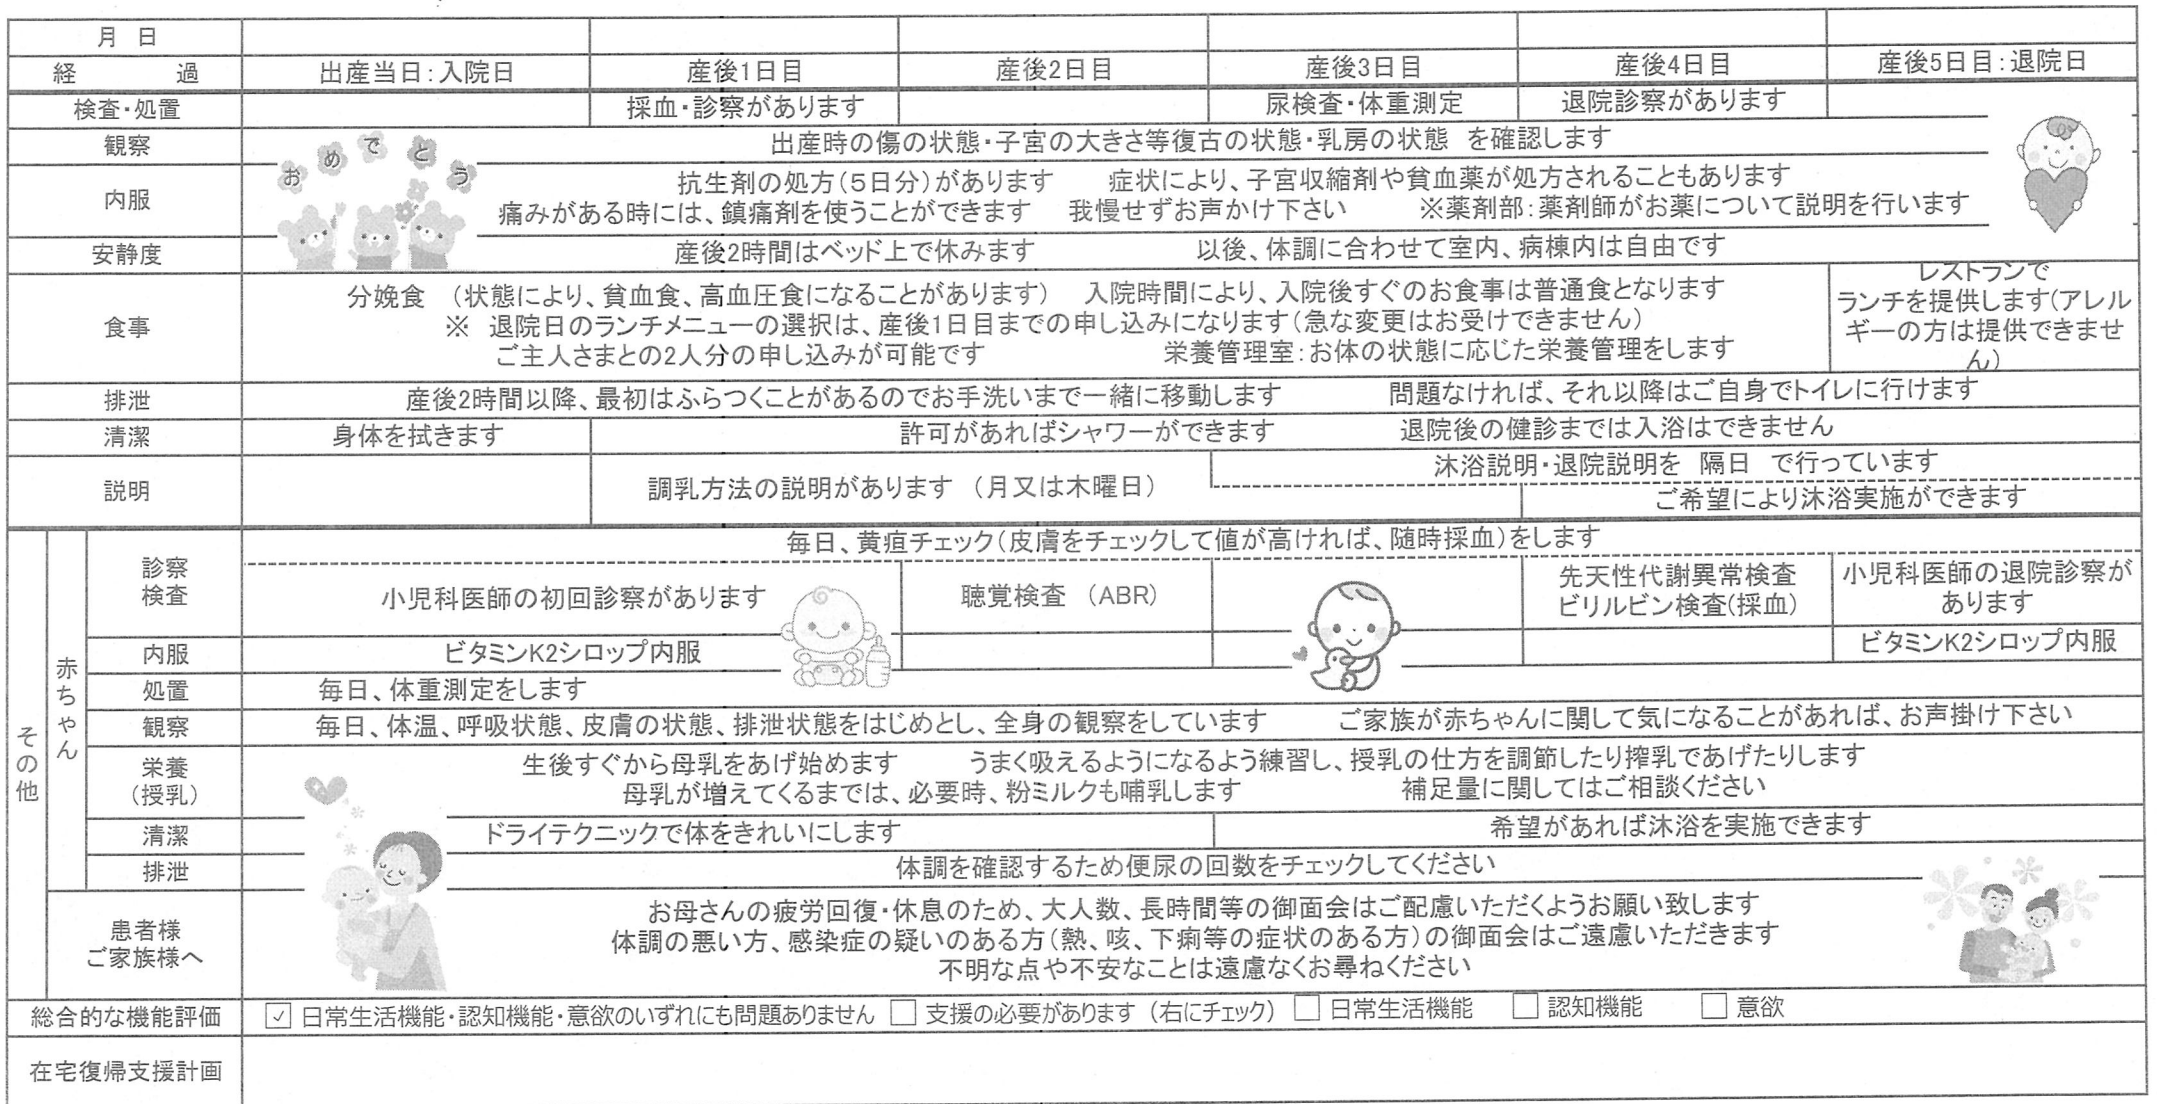 月 日
経 過 出産当日：入院日 産後1日目 産後2日目 産後3日目 産後4日目 産後5日目：退院日
検査・処置 採血・診察があります 尿検査・体重測定 退院診察があります
観察 出産時の傷の状態・子宮の大きさ等復古の状態・乳房の状態 を確認します
おめでとう
内服
抗生剤の処方（5日分）があります 症状により、子宮収縮剤や貧血薬が処方されることもあります
痛みがある時には、鎮痛剤を使うことができます 我慢せずお声かけ下さい ※薬剤部：薬剤師がお薬について説明を行います
安静度 産後2時間はベッド上で休みます 以後、体調に合わせて室内、病棟内は自由です
食事
分娩食 （状態により、貧血食、高血圧食になることがあります） 入院時間により、入院後すぐのお食事は普通食となります
※ 退院日のランチメニューの選択は、産後1日目までの申し込みになります（急な変更はお受けできません）
ご主人さまとの2人分の申し込みが可能です 栄養管理室：お体の状態に応じた栄養管理をします
レストランで
ランチを提供します（アレル
ギーの方は提供できませ
ん）
排泄 産後2時間以降、最初はふらつくことがあるのでお手洗いまで一緒に移動します 問題なければ、それ以降はご自身でトイレに行けます
清潔 身体を拭きます 許可があればシャワーができます 退院後の健診までは入浴はできません
説明 調乳方法の説明があります （月又は木曜日）
沐浴説明・退院説明を 隔日 で行っています
ご希望により沐浴実施ができます
その他
赤ちゃん
診察
検査
毎日、黄疸チェック（皮膚をチェックして値が高ければ、随時採血）をします
小児科医師の初回診察があります 聴覚検査 （ABR）
先天性代謝異常検査
ビリルビン検査（採血）
小児科医師の退院診察が
あります
内服 ビタミンK2シロップ内服 ビタミンK2シロップ内服
処置 毎日、体重測定をします
観察 毎日、体温、呼吸状態、皮膚の状態、排泄状態をはじめとし、全身の観察をしています ご家族が赤ちゃんに関して気になることがあれば、お声掛け下さい
栄養
（授乳）
生後すぐから母乳をあげ始めます うまく吸えるようになるよう練習し、授乳の仕方を調節したり搾乳であげたりします
母乳が増えてくるまでは、必要時、粉ミルクも哺乳します 補足量に関してはご相談ください
清潔 ドライテクニックで体をきれいにします 希望があれば沐浴を実施できます
排泄 体調を確認するため便尿の回数をチェックしてください
患者様
ご家族様へ
お母さんの疲労回復・休息のため、大人数、長時間等の御面会はご配慮いただくようお願い致します
体調の悪い方、感染症の疑いのある方（熱、咳、下痢等の症状のある方）の御面会はご遠慮いただきます
不明な点や不安なことは遠慮なくお尋ねください
総合的な機能評価 ☑ 日常生活機能・認知機能・意欲のいずれにも問題ありません □ 支援の必要があります （右にチェック） □ 日常生活機能 □ 認知機能 □ 意欲
在宅復帰支援計画